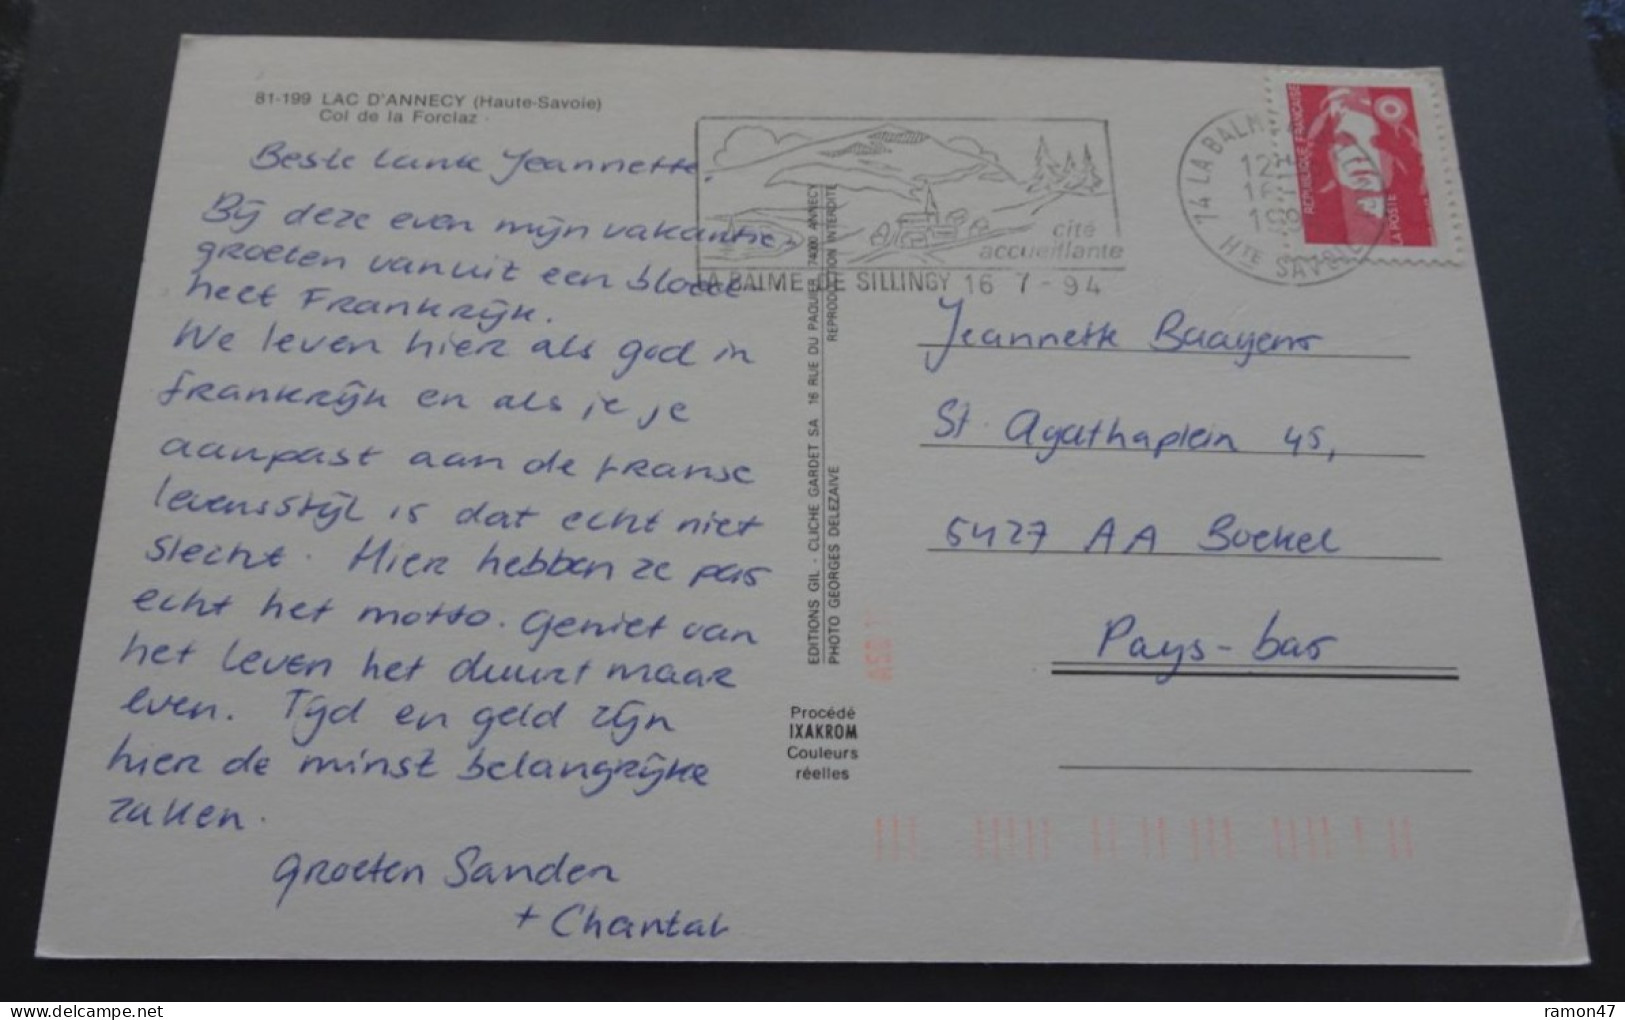 81-199 LAC D'ANNECY (Haute-Savoie)
Col de la Forclaz
Beste tante Jeannette,
Bij deze even mijn vakantie-
groeten vanuit een bloed-
heet Frankrijk.
We leven hier als god in
frankrijk en als je je
aanpast aan de franse
levensstijl is dat echt niet
slecht. Hier hebben ze pas
echt het motto. Geniet van
het leven het duurt maar
even. Tijd en geld zijn
hier de minst belangrijke
zaken.
groeten Sander
+ Chantal
EDITIONS GIL - CLICHE GARDET SA 16 RUE DU PAQUIER 74000 ANNECY
PHOTO GEORGES DELEZAIVE REPRODUCTION INTERDITE
Procédé
IXAKROM
Couleurs
réelles
cité
accueillante
LA BALME DE SILLINGY 16 7 - 94
74 LA BALM
Hte SAVOIE
REPUBLIQUE FRANÇAISE
LA POSTE
Jeannette Baayens
St. Agathaplein 45,
5427 AA Boekel
Pays-bas
ramon47